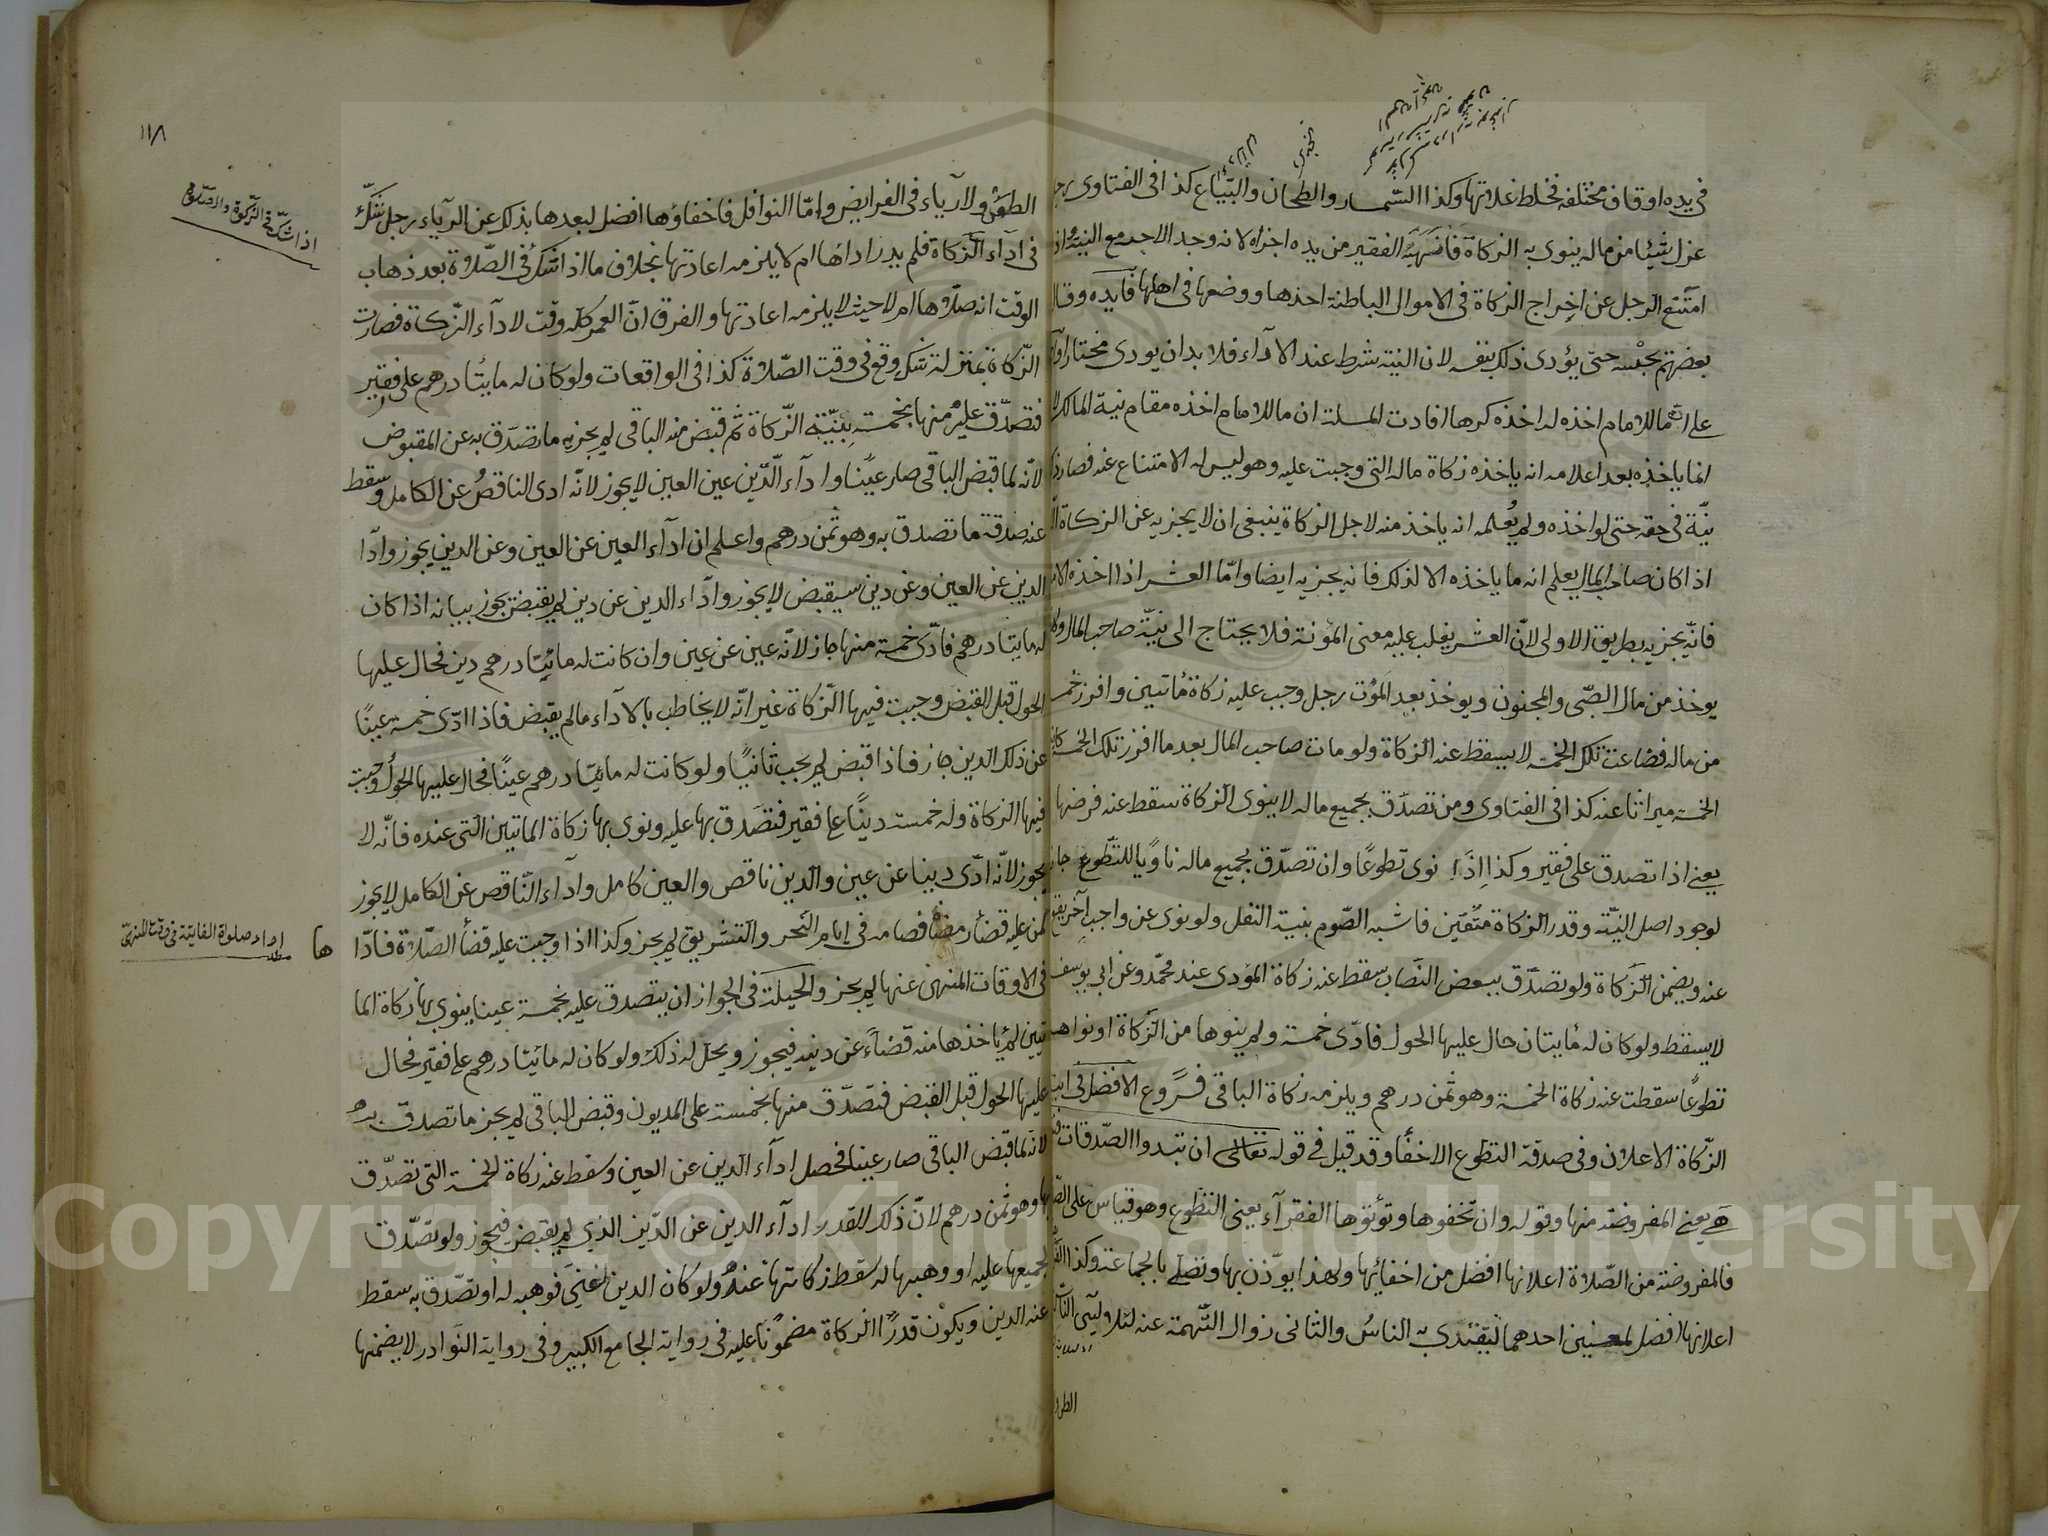 في يده اوقاف مختلفه فخلط غلاتها وكذا السمسار والطحان والبيّاع كذا فى الفتاوى رجل
عزل شيئا من ماله ينوى به الزكاة الفقير من يده اجزاه لانه وجد الاجد مع النية واذا
امتنع الرجل عن اخراج الزكاة فى الاموال الباطنة اخذها ووضعها فى اهلها وقال
بعضهم يحبسه حتى يؤدى ذلك بنفسه لان النية شرط عند الاداء فلا بد ان يودى مختارا
على ان ما للامام اخذه له اخذه كرها افادت المسلة ان ما للامام اخذه مقام نية المالك
انما ياخذه بعد اعلامه انه ياخذه زكاة ماله التى وجبت عليه وهو ليس له الامتناع عنه فصار
نيّة فى حقه حتى لو اخذه ولم يُعلمه انه ياخذ منه لاجل الزكاة ينبغى ان لا يجزيه عن الزكاة
اذا كان صاحب المال يعلم انه ما ياخذه الا لذلك فانه يجزيه ايضا وامّا العشر اذا اخذه
فانّه يجزيه بطريق الاولى لانّ العشر يغلب عليه معنى المؤنة فلا يحتاج الى نيّة صاحب المال
يوخذ من مال الصّبى والمجنون ويوخذ بعد الموت رجل وجب عليه زكاة مأتين وافرز خمسة
من ماله فضاعت تلك الخمسة لا يسقط عنه الزكاة ولو مات صاحب المال بعد ما افرز تلك الخمسة كانت
الخمسة ميراثا عنه كذا فى الفتاوى ومن تصدّق بجميع ماله لا ينوى الزكاة سقط عنه فرضها
يعنى اذا تصدق على فقير وكذا اِذَا نوى تطوعًا وان تصدّق بجميع ماله ناويًا للتطوع جاز
لوجود اصل النيّة وقدر الزكاة متعين فاشبه الصّوم بنية النفل ولو نوى عن واجب آخر يقع
عنه ويضمن الزكاة ولو تصدّق ببعض النصاب سقط عنه زكاة المؤدى عند محمّد وعن ابى يوسف
لا يسقط ولو كان له مأيتان حال عليها الحول فادّى خمسة ولم ينوها من الزكاة او نواها
تطوعًا سقطت عنه زكاة الخمسة وهو ثمن درهم ويلزمه زكاة الباقى فروع الافضل فى
الزّكاة الاعلان وفى صدقة التطوع الاخفأ وقد قيل فى قوله تعالى ان تبدوا الصّدقات
هى يعنى المفروضة منها وقوله وان تخفوها وتؤتوها الفقرآء يعنى التطوع وهو قياس على
فالمفروضة من الصّلاة اعلانها افضل من اخفائها ولهذا يوذن بها وتصلى بالجماعة وكذا
اعلانها افضل لمعنيين احدهما ليقتدى به الناسُ والثانى زوال التّهمة عنه لئلا
١١٨
الطعن ولا ريآء فى الفرايض وامّا النوافل فاخفاؤها افضل لبعدها بذلك عن الريآء رجل شكّ
فى ادآء الزكاة فلم يدر اداها ام لا يلزمه اعادتها بخلاف ما اذا شك فى الصّلاة بعد ذهاب
الوقت انه صلّاها ام لا حيث لا يلزمه اعادتها والفرق انّ العمر كلّه وقت لادآء الزّكاة فصارت
الزّكاة بمنزلة شك وقع فى وقت الصّلاة كذا فى الواقعات ولو كان له مايتا درهم على فقير
فتصدّق عليه منها بخمسة بنيّة الزّكاة ثم قبض منه الباقى لم يجزيه ما تصدّق به عن المقبوض
لانّه لما قبض الباقى صار عينًا وادآء الدّين عين العين لا يجوز لانّه ادى الناقص عن الكامل وسقط
عنه صدقة ما تصدق به وهو ثمن درهم واعلم ان ادآء العين عن العين وعن الدين يجوز وادّا
الدين عن العين وعن دين سيقبض لا يجوز وادّاء الدين عن دين لم يقبض يجوز بيانه اذا كان
له مايتا درهم فادّى خمسة منها جاز لانّه عين عن عين وان كانت له مائتا درهم دين فحال عليها
الحول قبل القبض وجبت فيها الزّكاة غير انّه لا يخاطب بالادآء ما لم يقبض فاذا ادّى خمسة عينًا
عن ذلك الدين جاز فاذا قبض لم يجب ثانيًا ولو كانت له مائتا درهم عينًا فحال عليها الحول وجبت
فيها الزكاة وله خمسة دينًا على فقير فتصدق بها عليه ونوى بها زكاة الماتين التى عنده فانّه لا
يجوز لانّه ادّى دينا عن عين والدين ناقص والعين كامل وادآء النّاقص عن الكامل لا يجوز
كمن عليه قضأ رمضان فصامه فى ايام النحر والتشريق لم يجز وكذا اذا وجبت عليه قضأ الصّلاة فادّا
ها
فى الاوقات المنهى عنها لم يجز والحيلة فى الجواز ان يتصدق عليه بخمسة عينا ينوى بها زكاة الما
تين ثم ياخذها منه قضاءً عن دينه فيجوز ويحل له ذلك ولو كان له مائيتا درهم على فقير فحال
عليها الحول قبل القبض فتصدّق منها بخمسة على المديون وقبض الباقى لم يجز ما تصدق به
لانّه لما قبض الباقى صار عينا فحصل ادآء الدين عن العين وسقط عنه زكاة الخمسة التى تصدّق
بها وهو ثمن درهم لانّ ذلك القدر ادآء الدين عن الدّين الذى لم يقبض فيجوز ولو تصدّق
بجميعها عليه او وهبها له سقط زكاتها عنه ولو كان الدين لغنى فوهبه له او تصدّق به سقط
عنه الدين ويكون قدر الزكاة مضمونا عليه فى رواية الجامع الكبير وفى رواية النوادر لا يضمنها
اذا شكّ فى الزكوة والصلوة
اداء صلواة الفايتة فى وقت المنهى
Copyright © King Saud University